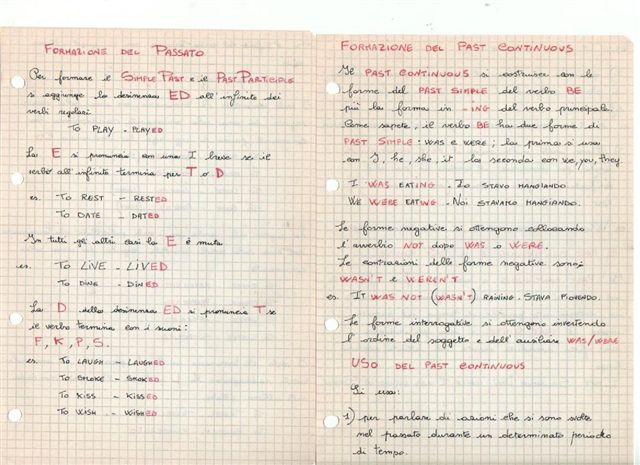 FORMAZIONE DEL PASSATO
Per formare il SIMPLE PAST e il PAST PARTICIPLE
si aggiunge la desinenza ED all'infinito dei
verbi regolari
TO PLAY - PLAYED
La E si pronuncia con una I breve se il
verbo all'infinito termina per T o D
es. TO REST - RESTED
TO DATE - DATED
In tutti gli altri casi la E è muta
es. TO LIVE - LIVED
TO DINE - DINED
La D della desinenza ED si pronuncia T se
il verbo termina con i suoni:
F, K, P, S.
es. TO LAUGH - LAUGHED
TO SMOKE - SMOKED
TO KISS - KISSED
TO WISH - WISHED
FORMAZIONE DEL PAST CONTINUOUS
Il PAST CONTINUOUS si costruisce con le
forme del PAST SIMPLE del verbo BE
più la forma in -ING del verbo principale.
Come sapete, il verbo BE ha due forme di
PAST SIMPLE: WAS e WERE; la prima si usa
con I, he, she, it la seconda con we, you, they
I WAS EATING - IO STAVO MANGIANDO
WE WERE EATING - NOI STAVAMO MANGIANDO.
Le forme negative si ottengono collocando
l'avverbio NOT dopo WAS o WERE.
Le contrazioni delle forme negative sono:
WASN'T e WEREN'T
es. IT WAS NOT (WASN'T) RAINING. STAVA PIOVENDO.
Le forme interrogative si ottengono invertendo
l'ordine del soggetto e dell'ausiliare WAS/WERE
USO DEL PAST CONTINUOUS
Si usa:
1) per parlare di azioni che si sono svolte
nel passato durante un determinato periodo
di tempo.